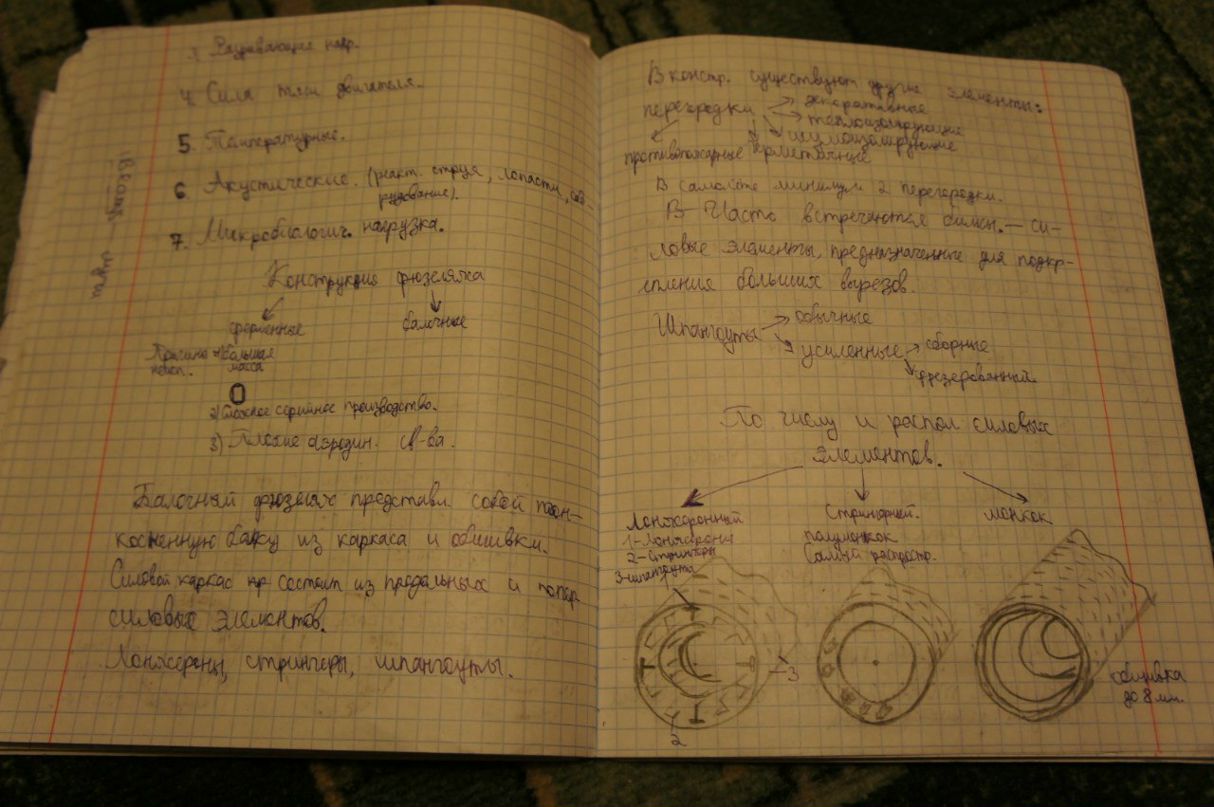 3. Разрывающие нагр.
4. Сила тяги двигателя.
5. Температурные.
6. Акустические. (реакт. струя, лопасти,
7. Микробиологич. нагрузка.
Конструкция фюзеляжа
ферменные балочные
большая
масса
2) сложное серийное производство.
3) Плохие аэродин. св-ва.
Балочный фюзеляж представл. собой тон-
костенную балку из каркаса и обшивки.
Силовой каркас пр состоит из продальных и попер
силовых элементов.
Лонжероны, стрингеры, шпангоуты.
В констр. существуют другие элементы:
перегородки декоративные
теплоизолирующие
шумоизолирующие
противопожарные герметичные
В самолёте минимум 2 перегородки.
В часть встречаются бимсы. — си-
ловые элементы, предназначенные для подкр-
епления больших вырезов.
Шпангоуты обычные
усиленные сборные
фрезерованный.
По числу и распол силовых
элементов.
Лонжеронный Стрингерный. монкок
1-лонжероны полумонкок
2-стрингеры Самый распростр.
3-шпангоута
3
2
обшивка
до 8 мм.